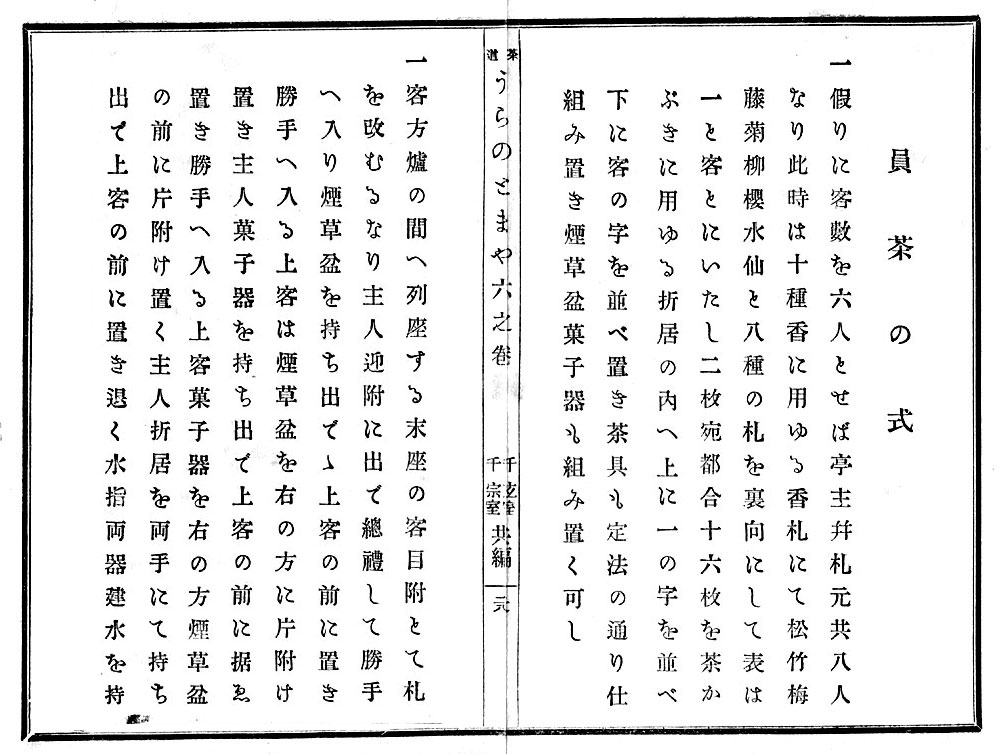 員茶の式
一假りに客數を六人とせば亭主幷札元共八人
なり此時は十種香に用ゆる香札にて松竹梅
藤菊柳櫻水仙と八種の札を裏向にして表は
一と客とにいたし二枚宛都合十六枚を茶か
ぶきに用ゆる折居の内へ上に一の字を並べ
下に客の字を並べ置き茶具も定法の通り仕
組み置き煙草盆菓子器も組み置く可し
茶道
うらのとまや六之卷
千玄室
千宗室
共編
一客方爐の間へ列座する末座の客目附とて札
を改むるなり主人迎附に出で總禮して勝手
へ入り煙草盆を持ち出でゝ上客の前に置き
勝手へ入る上客は煙草盆を右の方に片附け
置き主人菓子器を持ち出で上客の前に据ゑ
置き勝手へ入る上客菓子器を右の方煙草盆
の前に片附け置く主人折居を両手にて持ち
出で上客の前に置き退く水指両器建水を持